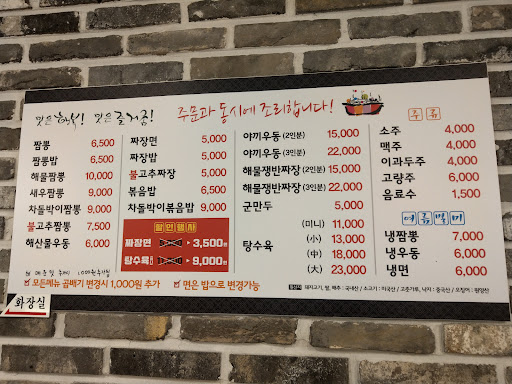 맛은 행복! 맛은 즐거움!
주문과 동시에 조리합니다!
짬뽕 6,500
짬뽕밥 6,500
해물짬뽕 10,000
새우짬뽕 9,000
차돌박이짬뽕 9,000
불고추짬뽕 7,500
해산물우동 6,000
짜장면 5,000
짜장밥 5,000
불고추짜장 5,000
볶음밥 6,500
차돌박이볶음밥 9,000
할인행사
짜장면 3,500원
탕수육 9,000원
야끼우동 (2인분) 15,000
야끼우동 (3인분) 22,000
해물쟁반짜장 (2인분) 15,000
해물쟁반짜장 (3인분) 22,000
군만두 5,000
탕수육 (미니) 11,000
(小) 13,000
(中) 18,000
(大) 23,000
주류
소주 4,000
맥주 4,000
이과두주 4,000
고량주 6,000
음료수 1,500
여름별미
냉짬뽕 7,000
냉우동 6,000
냉면 6,000
모든메뉴 곱배기 변경시 1,000원 추가
면은 밥으로 변경가능
원산지 돼지고기, 쌀, 배추 : 국내산 / 소고기 : 미국산 / 고춧가루, 낙지 : 중국산 / 오징어 : 원양산
화장실